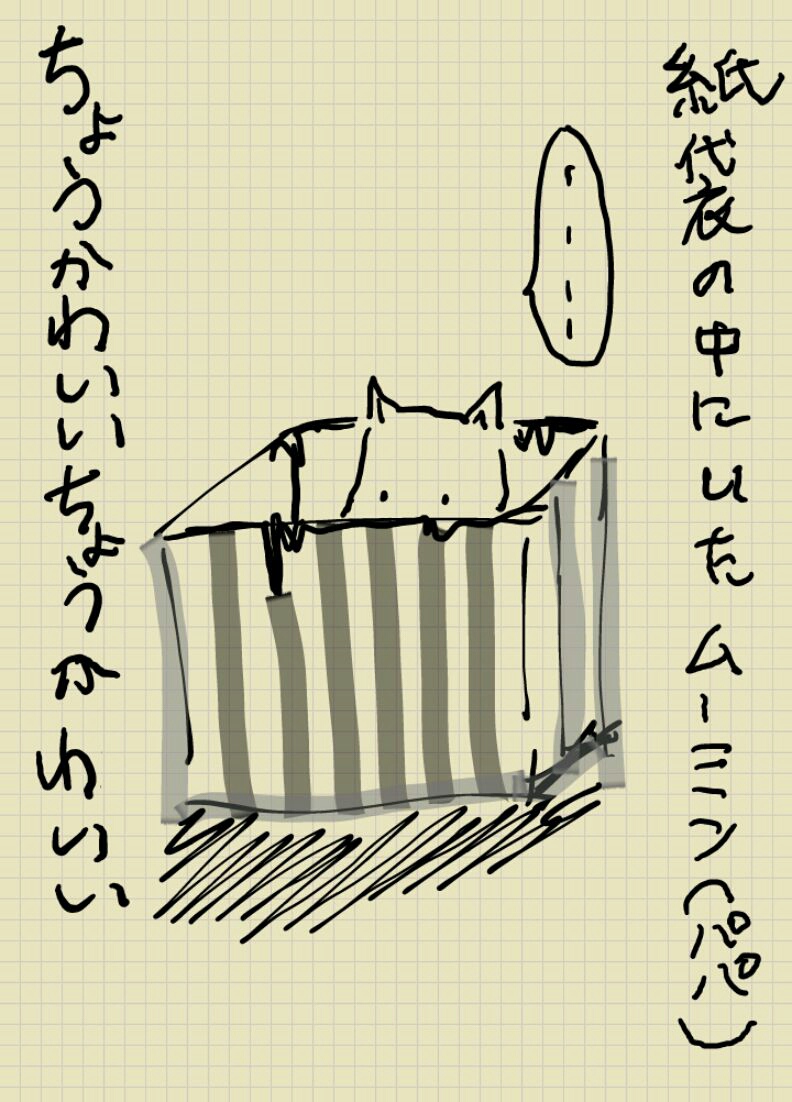 紙代衣の中にいたムーミン(パパ)
ちょうかわいいちょうかわいい